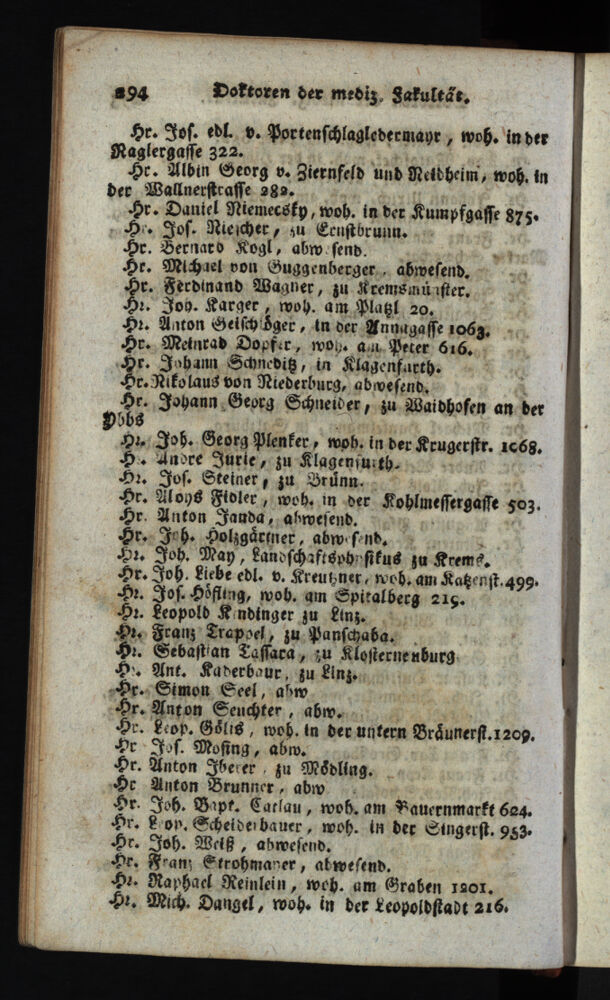 294 Doktoren der mediz. Fakultät.
Hr. Jos. edl. v. Portenschlagledermayr, woh. in der
Naglergasse 322.
Hr. Albin Georg v. Ziernfeld und Neidheim, woh. in
der Wallnerstrasse 282.
Hr. Daniel Niemecsky, woh. in der Kumpfgasse 875.
Hr. Jos. Niescher, zu Ernstbrunn.
Hr. Bernard Kogl, abwesend.
Hr. Michael von Guggenberger, abwesend.
Hr. Ferdinand Wagner, zu Kremsmünster.
Hr. Joh. Karger, woh. am Platzl 20.
Hr. Anton Geischläger, in der Annagasse 1063.
Hr. Meinrad Dopfer, woh. am Peter 616.
Hr. Johann Schneditz, in Klagenfurth.
Hr. Nikolaus von Niederburg, abwesend.
Hr. Johann Georg Schneider, zu Waidhofen an der
Ybbs
Hr. Joh. Georg Plenker, woh. in der Krugerstr. 1068.
Hr. Andre Jurie, zu Klagenfurth.
Hr. Jos. Steiner, zu Brünn.
Hr. Aloys Fidler, woh. in der Kohlmessergasse 503.
Hr. Anton Janda, abwesend.
Hr. Joh. Holzgärtner, abwesend.
Hr. Joh. May, Landschaftsphysikus zu Krems.
Hr. Joh. Liebe edl. v. Kreutzner, woh. am Katzenst. 499.
Hr. Jos. Höfling, woh. am Spitalberg 219.
Hr. Leopold Kindinger zu Linz.
Hr. Franz Trappel, zu Panschaba.
Hr. Sebastian Tassara, zu Klosterneuburg
Hr. Ant. Kaderbaur, zu Linz.
Hr. Simon Seel, abw
Hr. Anton Seuchter, abw.
Hr. Leop. Gölis, woh. in der untern Bräunerst. 1209.
Hr Jos. Mosing, abw.
Hr. Anton Iberer, zu Mödling.
Hr Anton Brunner, abw
Hr. Joh. Bapt. Carlau, woh. am Bauernmarkt 624.
Hr. Leop. Scheiderbauer, woh. in der Singerst. 953.
Hr. Joh. Weiß, abwesend.
Hr. Franz Strohmayer, abwesend.
Hr. Raphael Reinlein, woh. am Graben 1201.
Hr. Mich. Dangel, woh. in der Leopoldstadt 216.